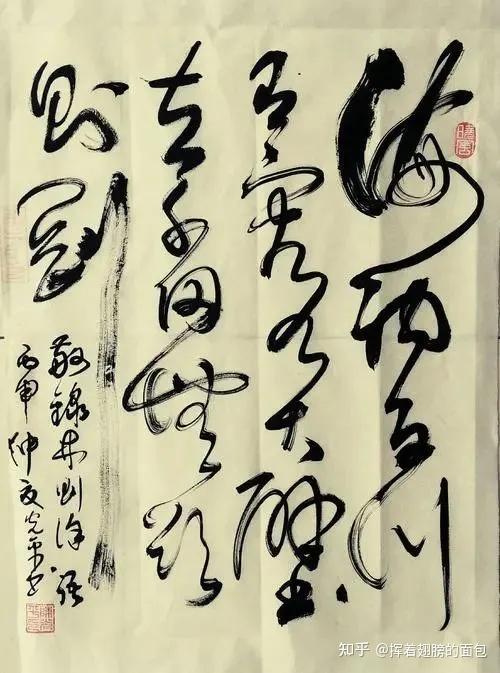 海納百川
有容乃大壁
立千仞無欲
則剛
敬錄林則徐語
丙申仲夏
知乎 @挥着翅膀的面包